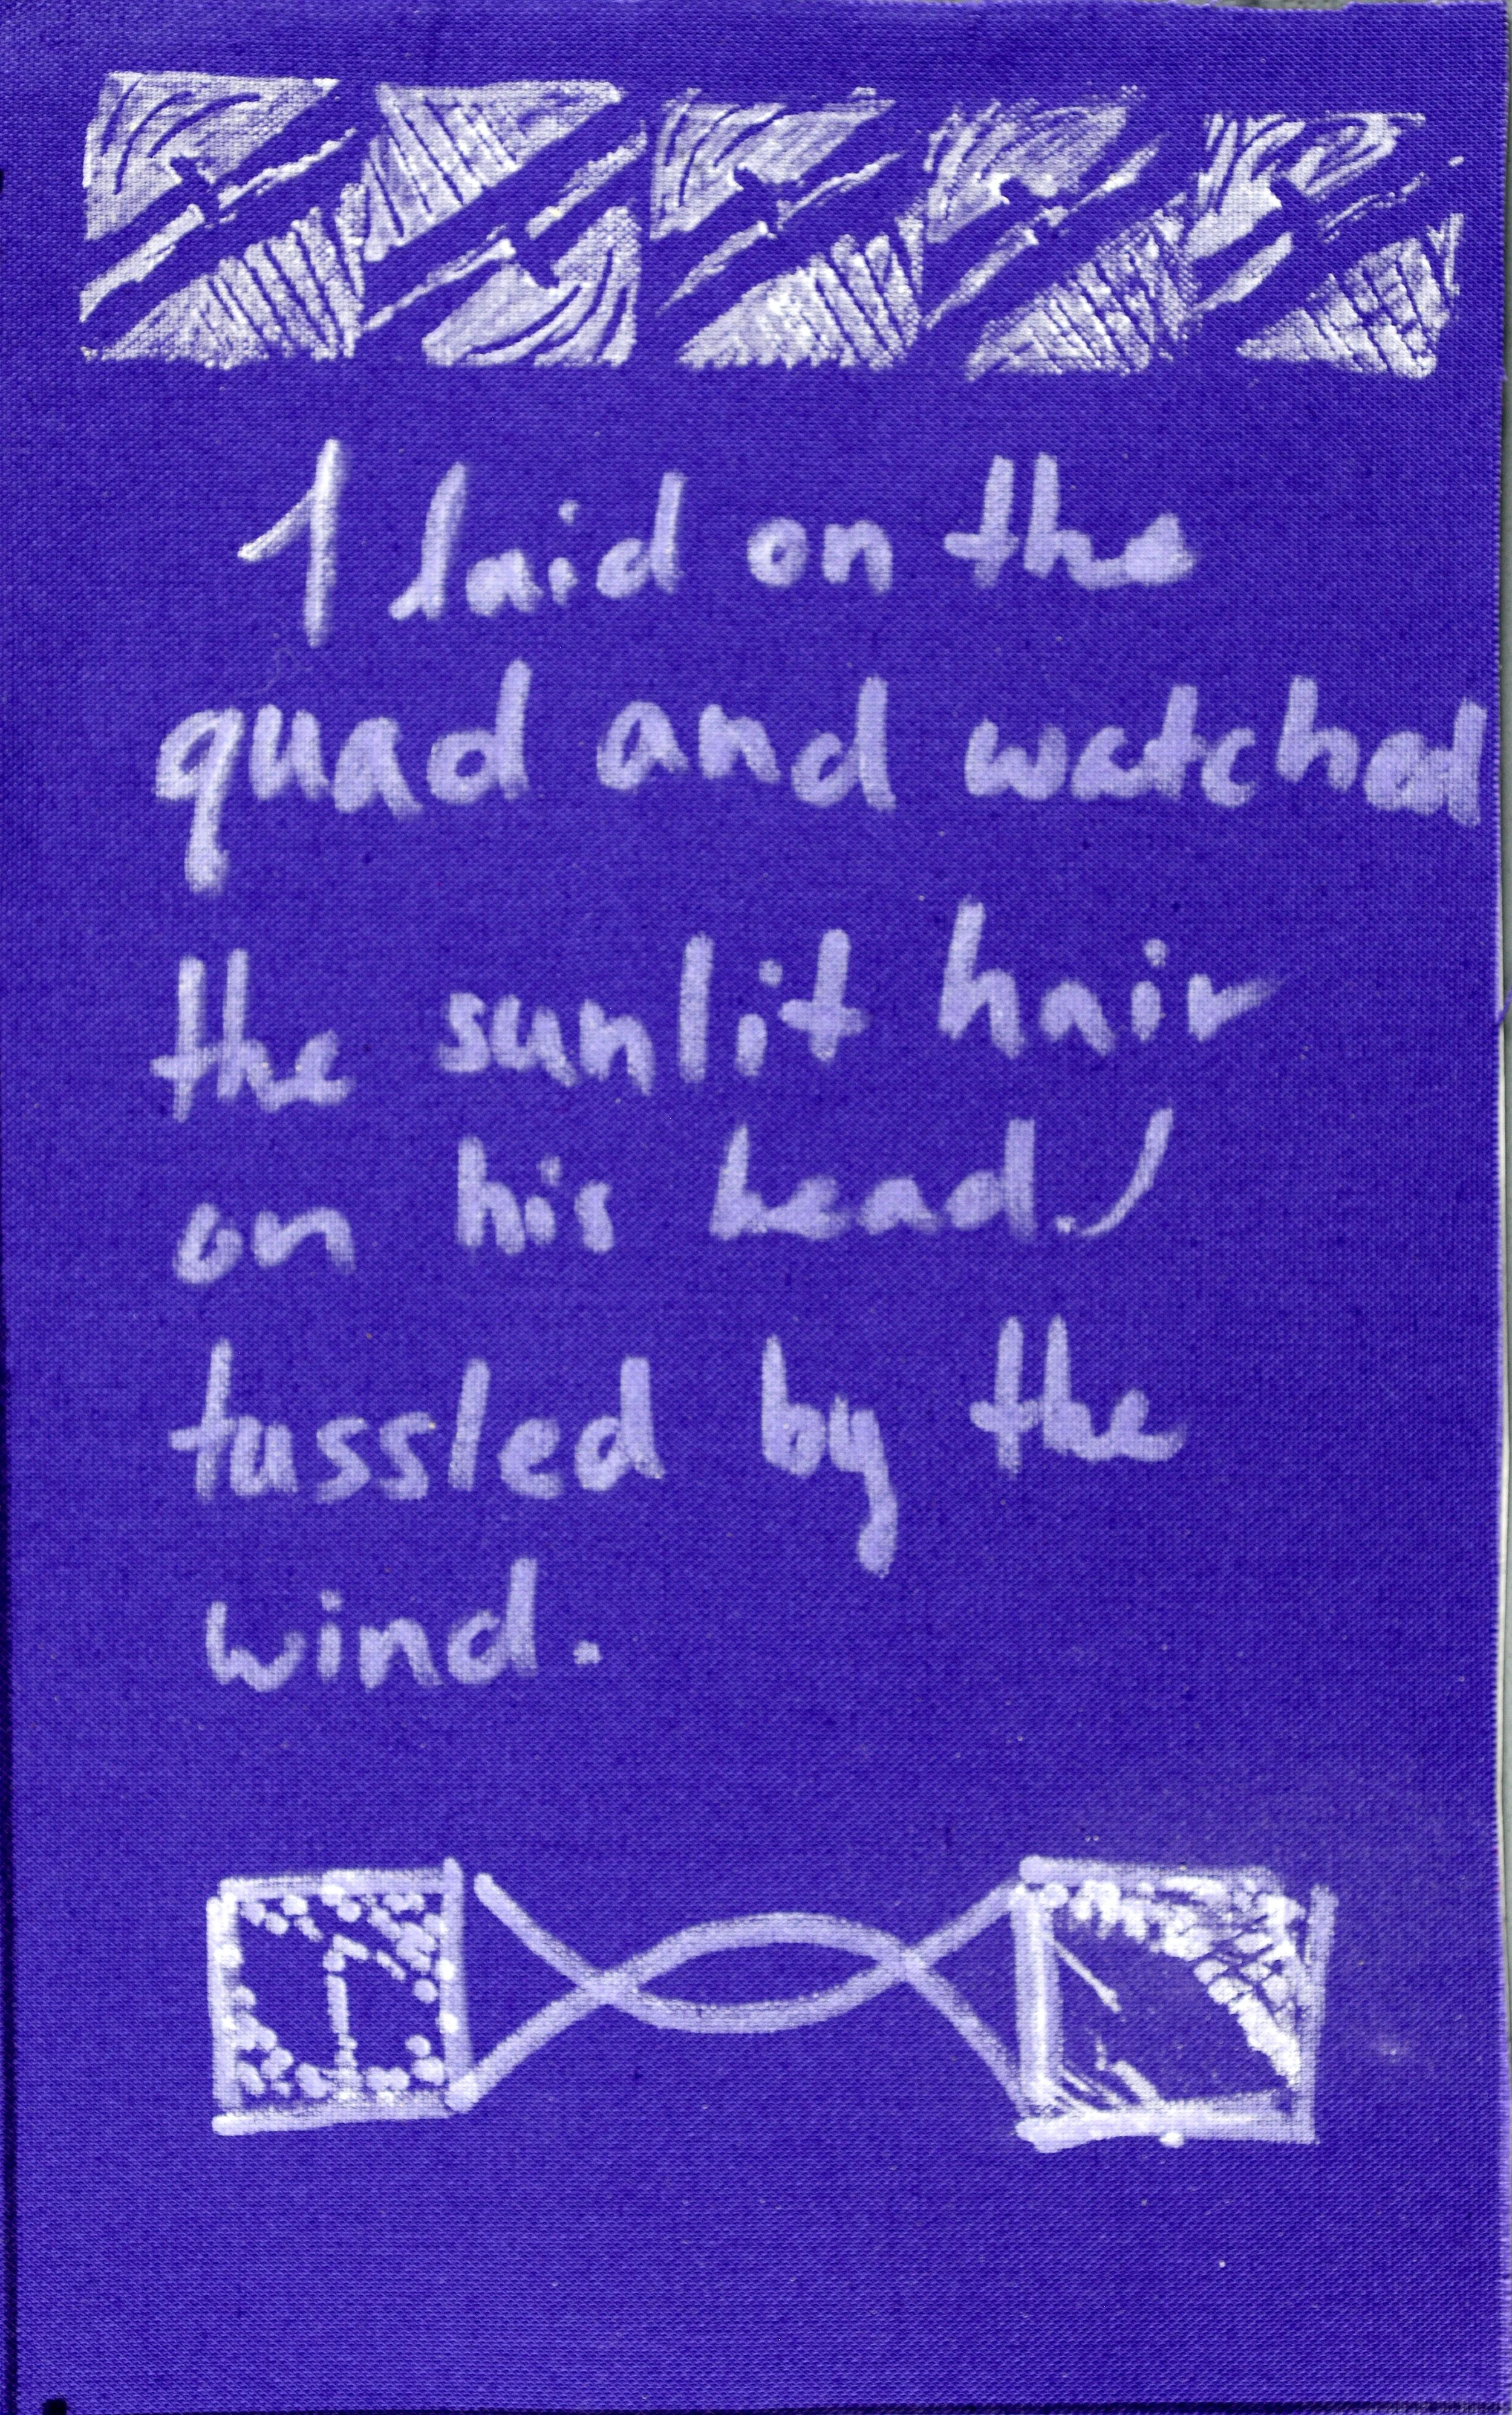 I laid on the
quad and watched
the sunlit hair
on his head)
tussled by the
wind.